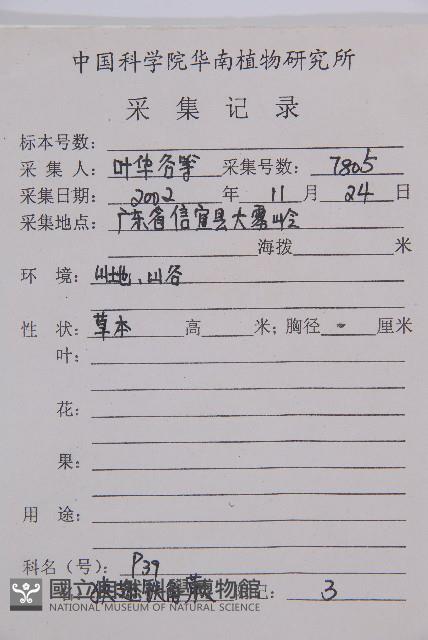 中国科学院华南植物研究所
采集记录
标本号数：
采集人：叶华谷等 采集号数：7805
采集日期：2002 年 11 月 24 日
采集地点：广东省信宜县大雾岭
海拨 米
环境：山地、山谷
性状：草本 高 米；胸径 - 厘米
叶：
花：
果：
用途：
科名（号）：P39
记：3
國立自然科學博物館
NATIONAL MUSEUM OF NATURAL SCIENCE